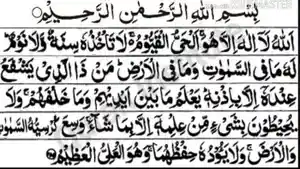 KINEMASTER
بِسْمِ اللهِ الرَّحْمٰنِ الرَّحِيْمِ
اَللهُ لَاۤ اِلٰهَ اِلَّا هُوَ ۚ اَلْحَىُّ الْقَيُّوْمُ ۚ لَا تَاْخُذُهٗ سِنَةٌ وَّلَا نَوْمٌ ؕ
لَهٗ مَا فِى السَّمٰوٰتِ وَمَا فِى الْاَرْضِ ؕ مَنْ ذَا الَّذِىْ يَشْفَعُ
عِنْدَهٗۤ اِلَّا بِاِذْنِهٖ ؕ يَعْلَمُ مَا بَيْنَ اَيْدِيْهِمْ وَمَا خَلْفَهُمْ ۚ وَلَا
يُحِيْطُوْنَ بِشَىْءٍ مِّنْ عِلْمِهٖۤ اِلَّا بِمَا شَآءَ ۚ وَسِعَ كُرْسِيُّهُ السَّمٰوٰتِ
وَالْاَرْضَ ۚ وَلَا يَئُوْدُهٗ حِفْظُهُمَا ۚ وَهُوَ الْعَلِىُّ الْعَظِيْمُ